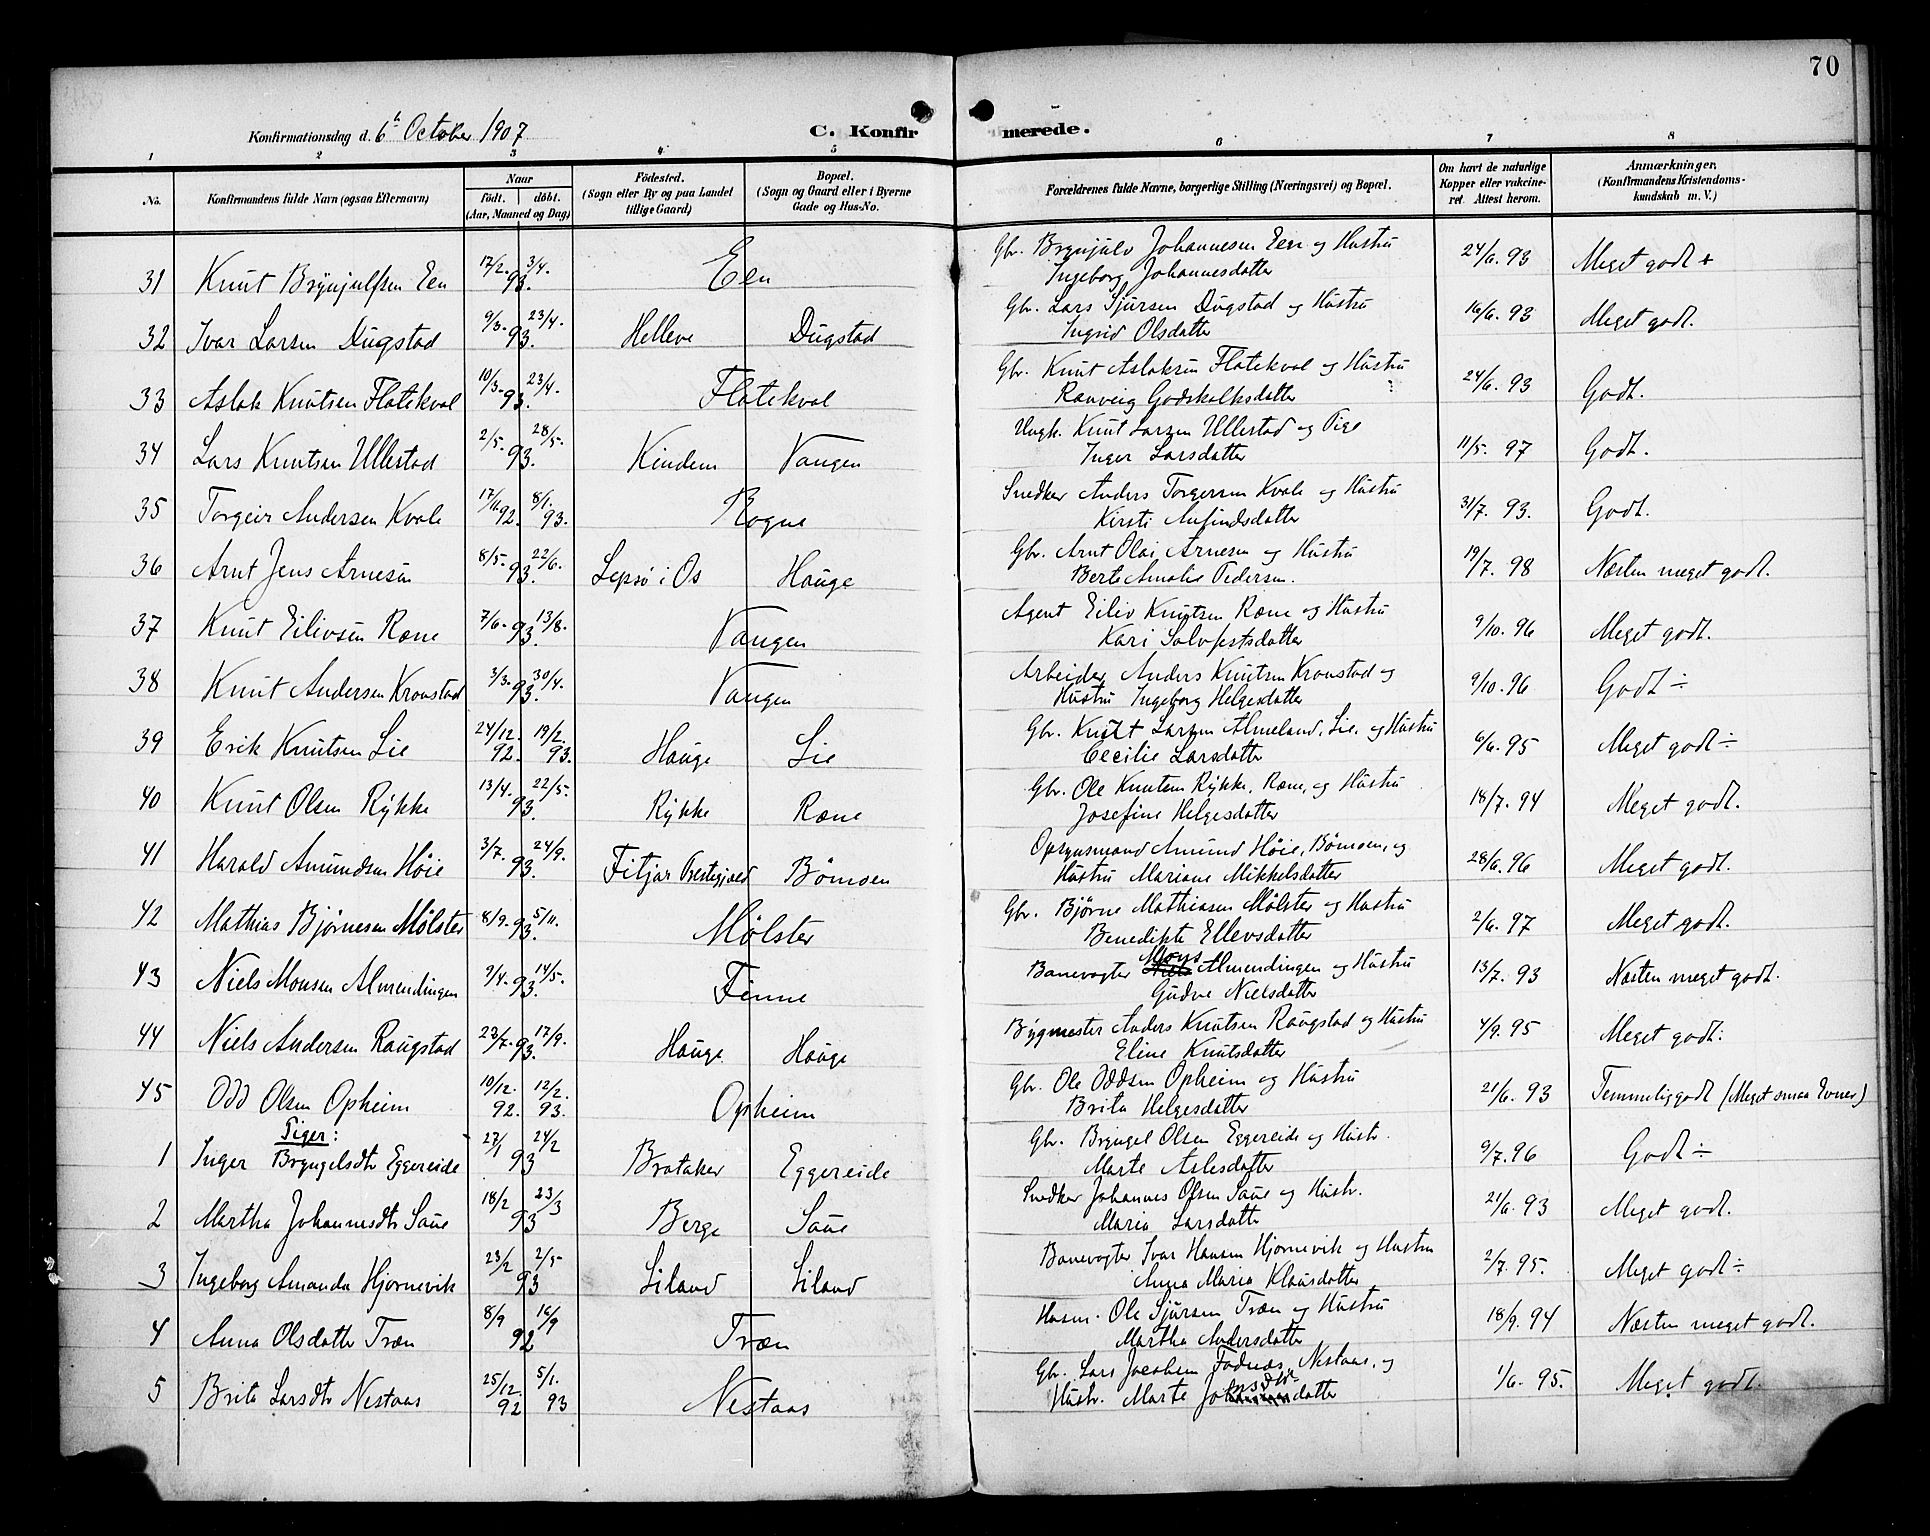 70
Konfirmationsdag d. 6te October 1907
C. Konfirmerede.
1 2 3 4 5 6 7 8
No. Konfirmandens fulde Navn (ogsaa Efternavn) Naar Födt. döbt. (Aar, Maaned og Dag) Födested. (Sogn eller By og paa Landet tillige Gaard) Bopæl. (Sogn og Gaard eller i Byerne Gade og Hus-No. Forældrenes fulde Navne, borgerlige Stilling (Næringsvei) og Bopæl. Om havt de naturlige Kopper eller vakcineret. Attest herom. Anmærkninger. (Konfirmandens Kristendomskundskab m. V.)
31 Knut Brynjulfsen Een 17/2. 3/4. 93. Een Gbr. Brynjulv Johannesen Een og Hustru Ingeborg Johannesdatter 24/6. 93 Meget godt +
32 Ivar Larsen Dugstad 9/3. 23/4. 93. Helleve Dugstad Gbr. Lars Sjursen Dugstad og Hustru Ingrid Olsdatter 16/6. 93 Meget godt.
33 Aslak Knutsen Flatekval 10/3. 23/4. 93. Flatekval Gbr. Knut Aslaksen Flatekval og Hustru Ranveig Godskalksdatter 24/6. 93 Godt.
34 Lars Knutsen Ullestad 2/5. 28/5. 93. Kindem Vangen Ungk. Knut Larsen Ullestad og Pige Inger Larsdatter 11/5. 97 Godt.
35 Torgeir Andersen Kvale 17/11. 92. 8/1. 93. Rogne Snedker Anders Torgersen Kvale og Hustru Kirsti Anfindsdatter 31/7. 93. Godt.
36 Arnt Jens Arnesen 8/5. 22/6. 93. Lepsö i Os Hauge Gbr. Arnt Olai Arnesen og Hustru Berte Amalie Pedersen. 19/7. 98 Næsten meget godt.
37 Knut Eilivsen Rene 7/6. 13/8. 93. Vangen Agent Eiliv Knutsen Rene og Hustru Kari Solvfestsdatter 9/10. 96 Meget godt.
38 Knut Andersen Kronstad 3/3. 30/4. 93. Vangen Arbeider Anders Knutsen Kronstad og Hustru Ingeborg Helgesdatter 9/10. 96 Godt ÷
39 Erik Knutsen Lie 24/12. 92. 19/2. 93. Hauge Lie Gbr. Knut Larsen Almeland, Lie, og Hustru Cecilie Larsdatter 6/6. 95 Meget godt ÷
40 Knut Olsen Rykke 13/4. 22/5. 93. Rykke Rene Gbr. Ole Knutsen Rykke, Rene, og Hustru Josefine Helgesdatter 18/7. 94 Meget godt.
41 Harald Amundsen Høie 3/7. 24/9. 93. Fitjar Prestegjæld Bømoen Opsynsmand Amund Høie, Bømoen, og Hustru Mariane Mikkelsdatter 28/6. 96 Meget godt.
42 Mathias Bjørnesen Mølster 8/9. 5/11. 93. Mølster Gbr. Bjørne Mathiasen Mølster og Hustru Benedikte Ellevsdatter 2/6. 97 Meget godt.
43 Niels Monsen Almendingen 9/4. 14/5. 93. Finne Banevogter Mons Almendingen og Hustru Gudve Nielsdatter 13/7. 93 Næsten meget godt.
44 Niels Andersen Raugstad 22/7. 17/9. 93. Hauge Hauge Bygmester Anders Knutsen Raugstad og Hustru Eline Knutsdatter 4/9. 95 Meget godt.
45 Odd Olsen Opheim 10/12. 92. 12/2. 93. Opheim Gbr. Ole Oddsen Opheim og Hustru Brita Helgesdatter 21/6. 93 Temmelig godt (Meget smaa Evner)
Piger:
1 Inger Bryngelsdtr Eggereide 27/1 24/2 93 Brataker Eggereide Gbr. Bryngel Olsen Eggereide og Hustr. Marte Aslesdatter 9/7. 96 Godt ÷
2 Martha Johannesdtr Saue 18/2 23/3 93 Berge Saue Snedker Johannes Olsen Saue og Hustr. Maria Larsdatter 21/6. 93 Meget godt.
3 Ingeborg Amanda Hjørnevik 23/2 2/5 93 Liland Liland Banevogter Ivar Hansen Hjørnevik og Hustru Anna Maria Klausdatter 2/7. 95. Meget godt ÷
4 Anna Olsdatter Træn 8/9 16/9 92 Træn Husm. Ole Sjursen Træn og Hustru Martha Andersdatter 18/9. 94 Næsten meget godt.
5 Brita Larsdtr Nestaas 25/12. 92 5/1. 93 Nestaas Gbr. Lars Jacobsen Fadnæs, Nestaas, og Hustr. Marte 1/6. 95. Meget godt.